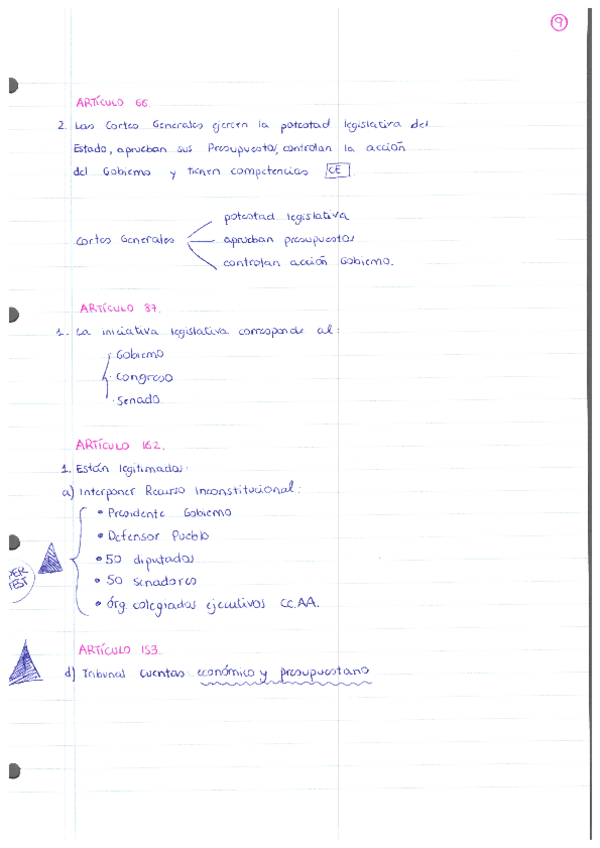 9
ARTÍCULO 66.
2. Las Cortes Generales ejercen la potestad legislativa del
Estado, aprueban sus Presupuestos, controlan la acción
del Gobierno y tienen competencias CE
potestad legislativa
Cortes Generales aprueban presupuestos
controlan acción Gobierno.
ARTÍCULO 87.
1. La iniciativa legislativa corresponde al:
· Gobierno
· Congreso
· Senado
ARTÍCULO 162.
1. Están legitimados:
a) Interponer Recurso Inconstitucional:
• Presidente Gobierno
• Defensor Pueblo
• 50 diputados
• 50 senadores
• órg. colegiados ejecutivos CC.AA.
TEST
ARTÍCULO 153.
d) Tribunal Cuentas económico y presupuestario